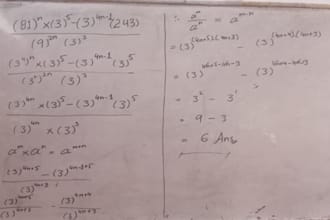 (81)ⁿ×(3)⁵-(3)⁴ⁿ⁻¹(243)
(9)²ⁿ (3)³
(3⁴)ⁿ×(3)⁵-(3)⁴ⁿ⁻¹(3)⁵
(3²)²ⁿ (3)³
(3)⁴ⁿ×(3)⁵-(3)⁴ⁿ⁻¹(3)⁵
(3)⁴ⁿ×(3)³
aᵐ×aⁿ=aᵐ⁺ⁿ
(3)⁴ⁿ⁺⁵-(3)⁴ⁿ⁻¹⁺⁵
(3)⁴ⁿ⁺³
(3)⁴ⁿ⁺⁵ - (3)⁴ⁿ⁺⁴
(3)⁴ⁿ⁺³ (3)⁴ⁿ⁺³
∵ aᵐ/aⁿ = aᵐ⁻ⁿ
=(3)⁽⁴ⁿ⁺⁵⁾⁻⁽⁴ⁿ⁺³⁾ - (3)⁽⁴ⁿ⁺⁴⁾⁻⁽⁴ⁿ⁺³⁾
=(3)⁴ⁿ⁺⁵⁻⁴ⁿ⁻³ - (3)⁴ⁿ⁺⁴⁻⁴ⁿ⁻³
= 3² - 3¹
= 9 - 3
= 6 Ans